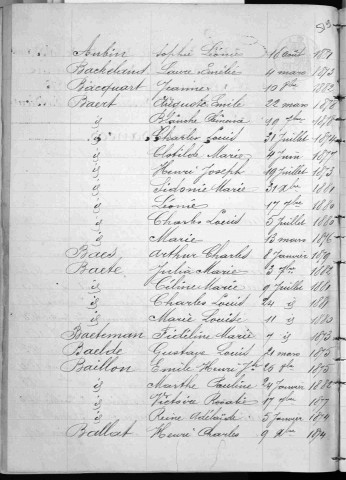 Aubin Sophie Léonie 16 août
Bachelard Laura Emélie 4 mars 1873
Bacquart Jeanne 10 8bre 1882
Baert Auguste Emile 22 mars
id Blanche Emma
id Charles Louis 31 Juillet 1874
id Clotilde Marie 4 Juin 1877
id Henri Joseph 19 Juillet 1873
id Sidonie Marie 31 Xbre
id Léonie 17 7bre
id Charles Louis 5 Juillet
id Marie 13 mars 1876
Baes Arthur Charles 8 Janvier 1879
Baete Julia Marie 3 7bre 1882
id Céline Marie 9 Juillet
id Charles Louis 24 id
id Marie Louise 11 id
Baeteman Fidéline Marie 7 id 1873
Baelde Gustave Louis 21 mars 1873
Baillon Emile Henri 25 8bre 1875
id Marthe Pauline 24 Janvier
id Victoire Rosalie 17
id Reine Adélaïde 5 Janvier 1874
Ballat Henri Charles 9 Xbre 1874